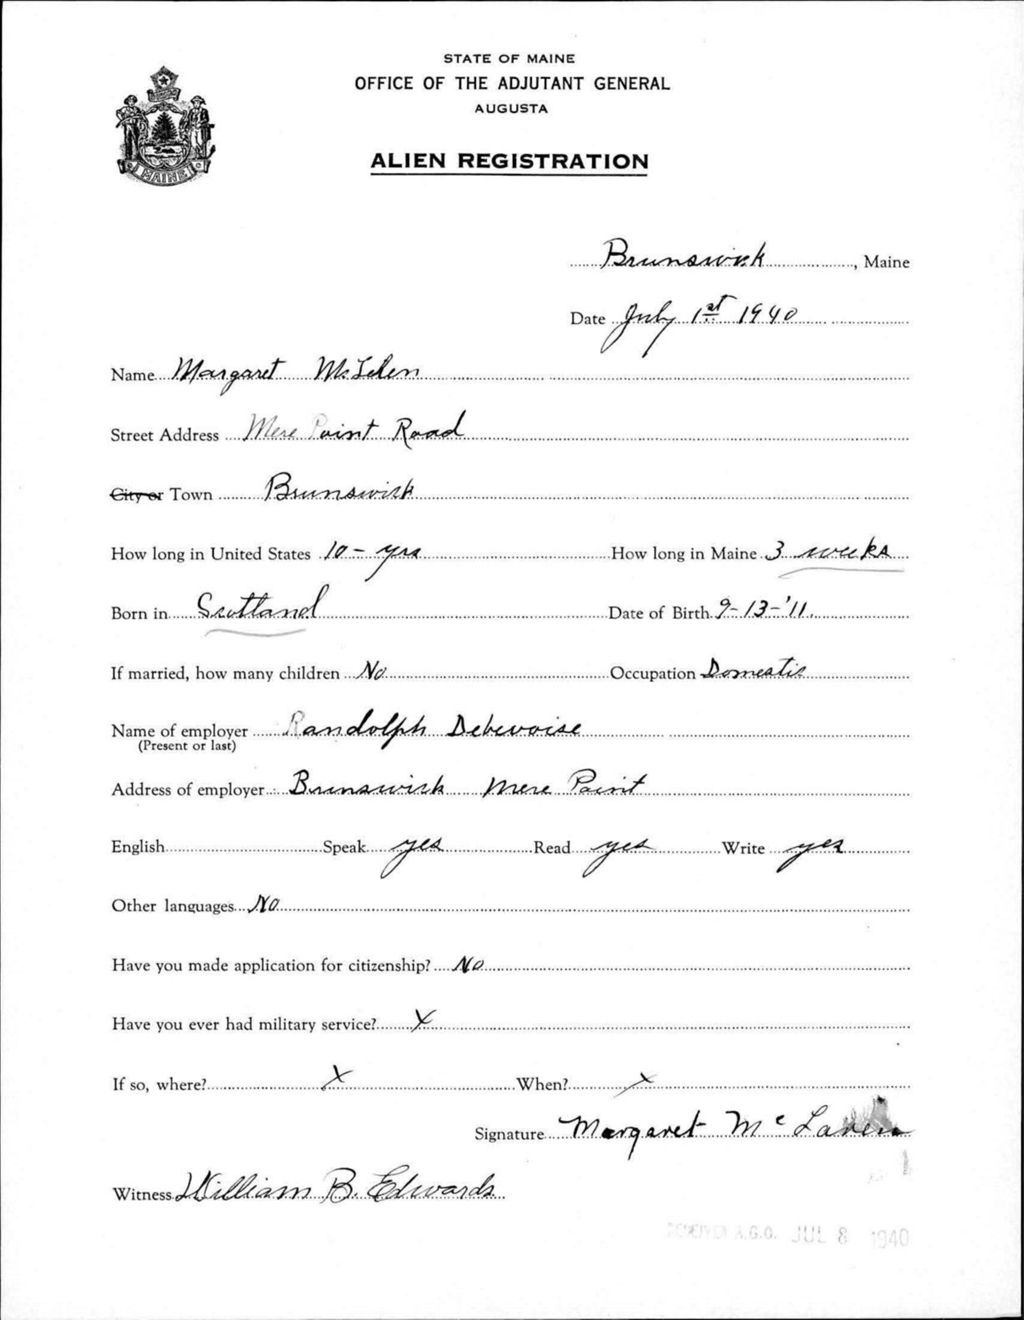 STATE OF MAINE
OFFICE OF THE ADJUTANT GENERAL
AUGUSTA
ALIEN REGISTRATION
MAINE
Brunswick, Maine
Date July 1st 1940
Name Margaret
Street Address Mere Point Road
City or Town Brunswick
How long in United States 10 - yrs How long in Maine 3 weeks
Born in Scotland Date of Birth 9-13-'11
If married, how many children No Occupation Domestic
Name of employer Randolph Debevoise
(Present or last)
Address of employer Brunswick Mere Point
English Speak yes Read yes Write yes
Other languages No
Have you made application for citizenship? No
Have you ever had military service? X
If so, where? X When? X
Signature Margaret McLaren
Witness William B. Edwards
RECEIVED A.G.O. JUL 8 1940